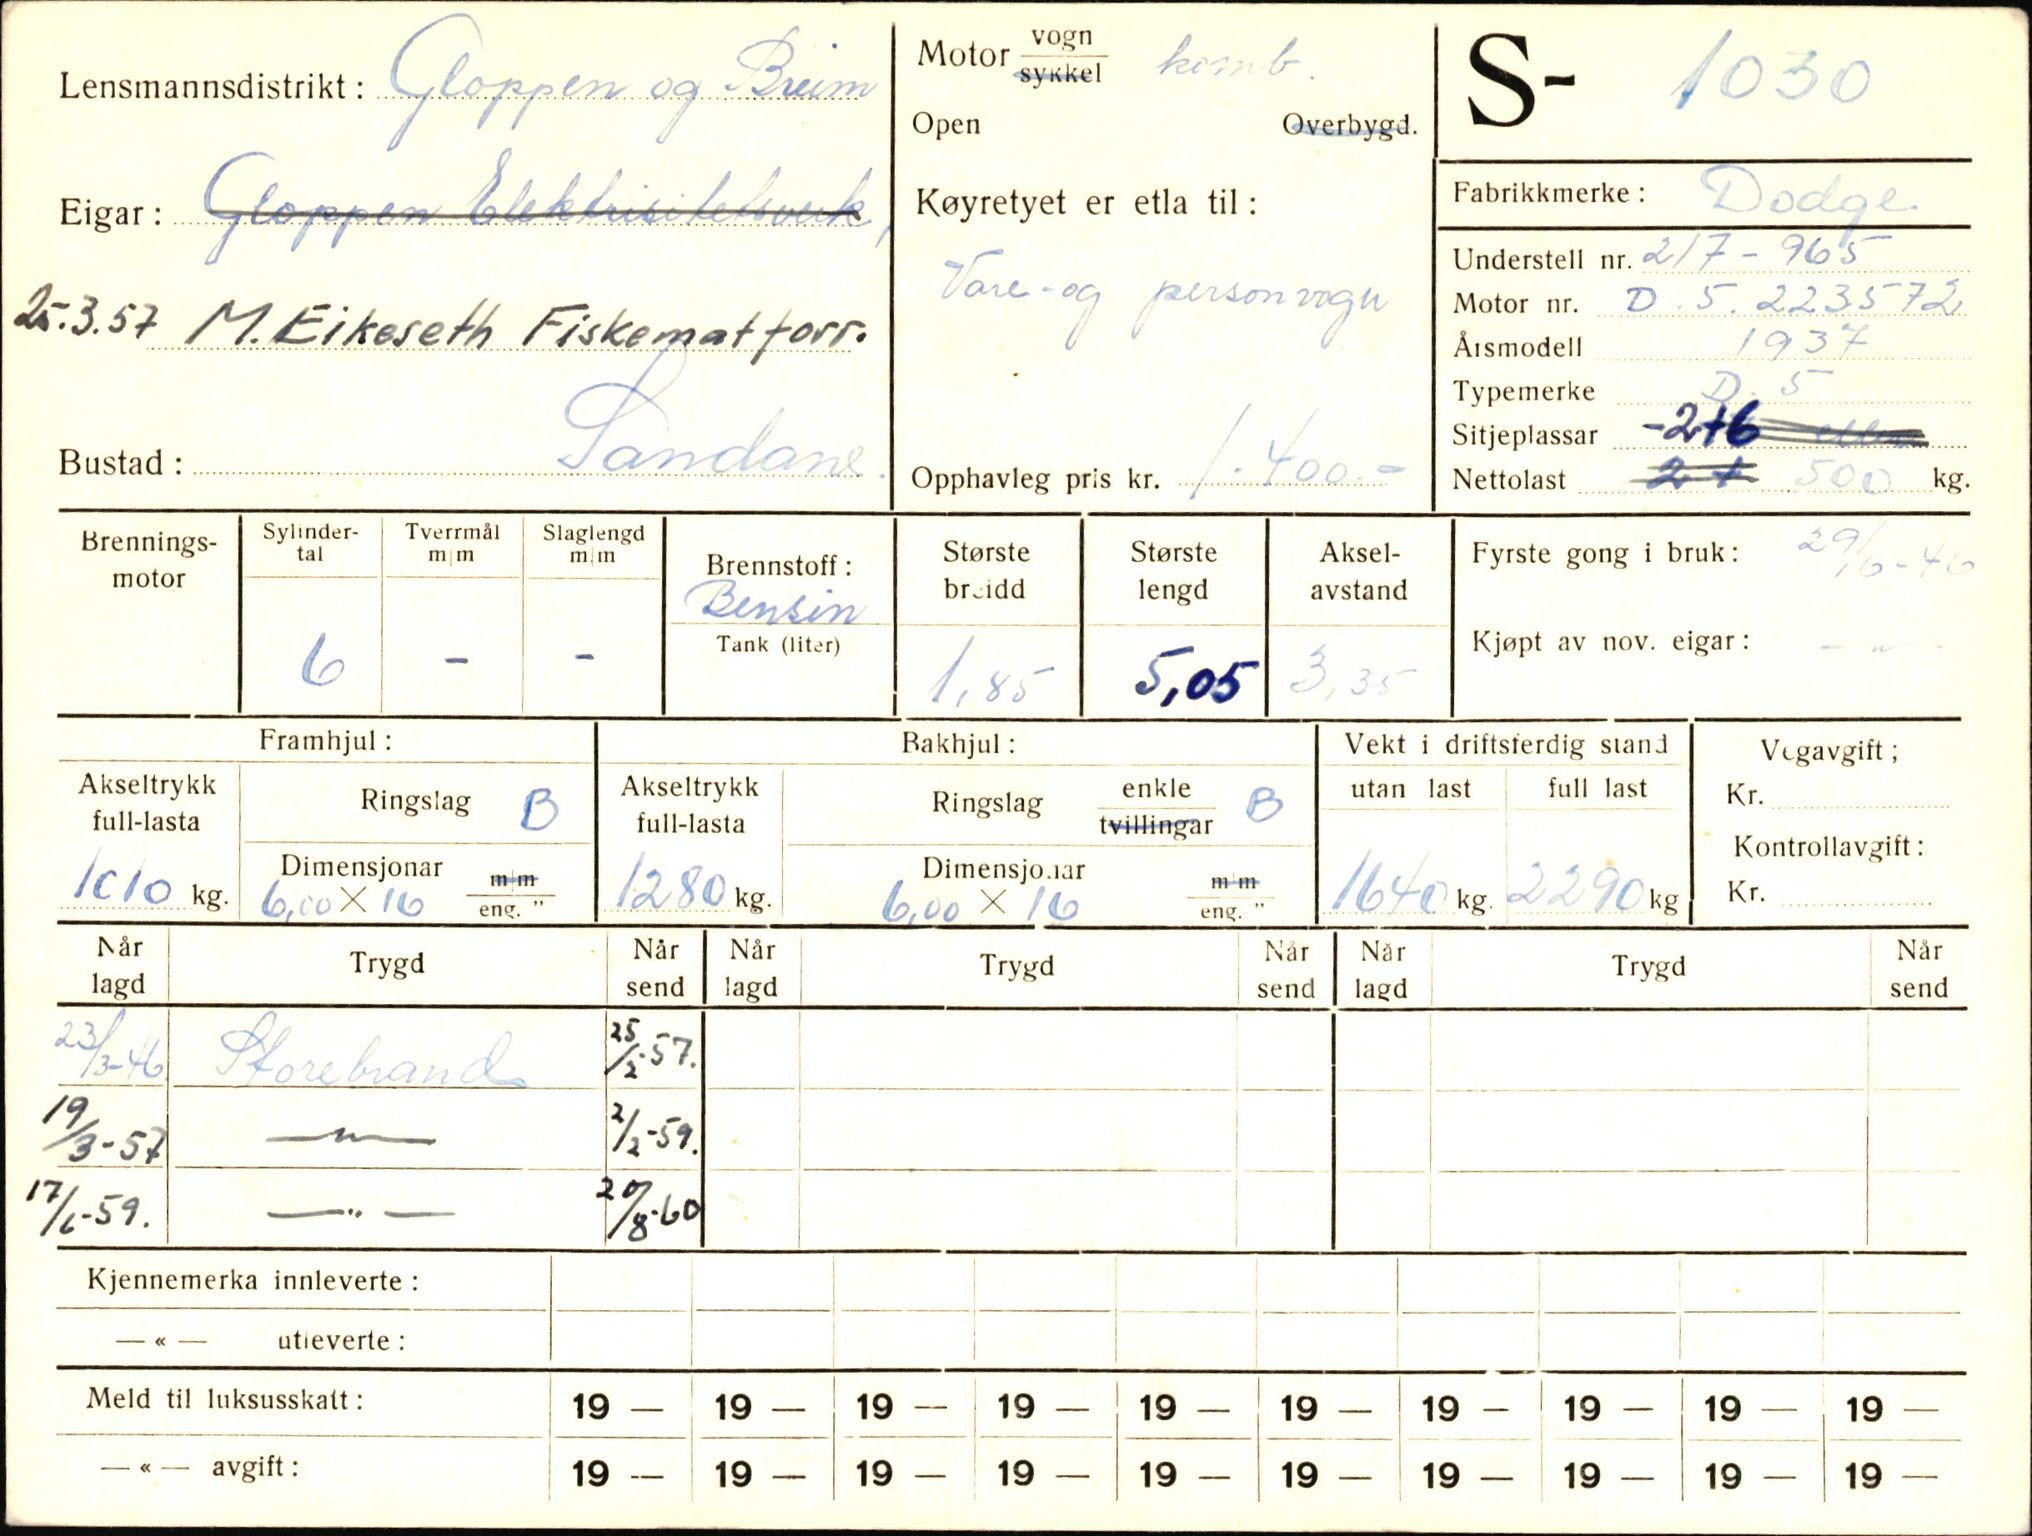 Lensmannsdistrikt: Gloppen og Breim
Eigar: Gloppen Elektrisitetsverk,
25.3.57 M. Eikeseth Fiskematforr.
Bustad: Sandane.
Motor vogn
sykkel komb.
Open Overbygd.
Køyretyet er etla til:
Vare- og personvogn
Opphavleg pris kr. 1.400.-
S- 1030
Fabrikkmerke: Dodge
Understell nr. 217-965
Motor nr. D.5.223572
Årsmodell 1937
Typemerke D.5
Sitjeplassar -2+6 eller
Nettolast 2 + 500 kg.
Brennings-
motor
Sylinder-
tal
6
Tverrmål
m|m
-
Slaglengd
m|m
-
Brennstoff:
Bensin
Tank (liter)
Største
breidd
1,85
Største
lengd
5,05
Aksel-
avstand
3,35
Fyrste gong i bruk: 29/6-46
Kjøpt av nov. eigar: - " -
Framhjul:
Akseltrykk
full-lasta
1010 kg.
Ringslag B
Dimensjonar m|m
6,00 × 16 eng. "
Bakhjul:
Akseltrykk
full-lasta
1280 kg.
Ringslag enkle
tvillingar B
Dimensjonar m|m
6,00 × 16 eng. "
Vekt i driftsferdig stand
utan last full last
1640 kg. 2290 kg
Vegavgift;
Kr.
Kontrollavgift:
Kr.
Når
lagd Trygd Når
send Når
lagd Trygd Når
send Når
lagd Trygd Når
send
23/3-46 Storebrand 25/2-57.
19/3-57 — " — 2/2-59.
17/6-59. — " — 20/8-60
Kjennemerka innleverte:
— « — utleverte:
Meld til luksusskatt: 19 — 19 — 19 — 19 — 19 — 19 — 19 — 19 — 19 — 19 —
— « — avgift: 19 — 19 — 19 — 19 — 19 — 19 — 19 — 19 — 19 — 19 —